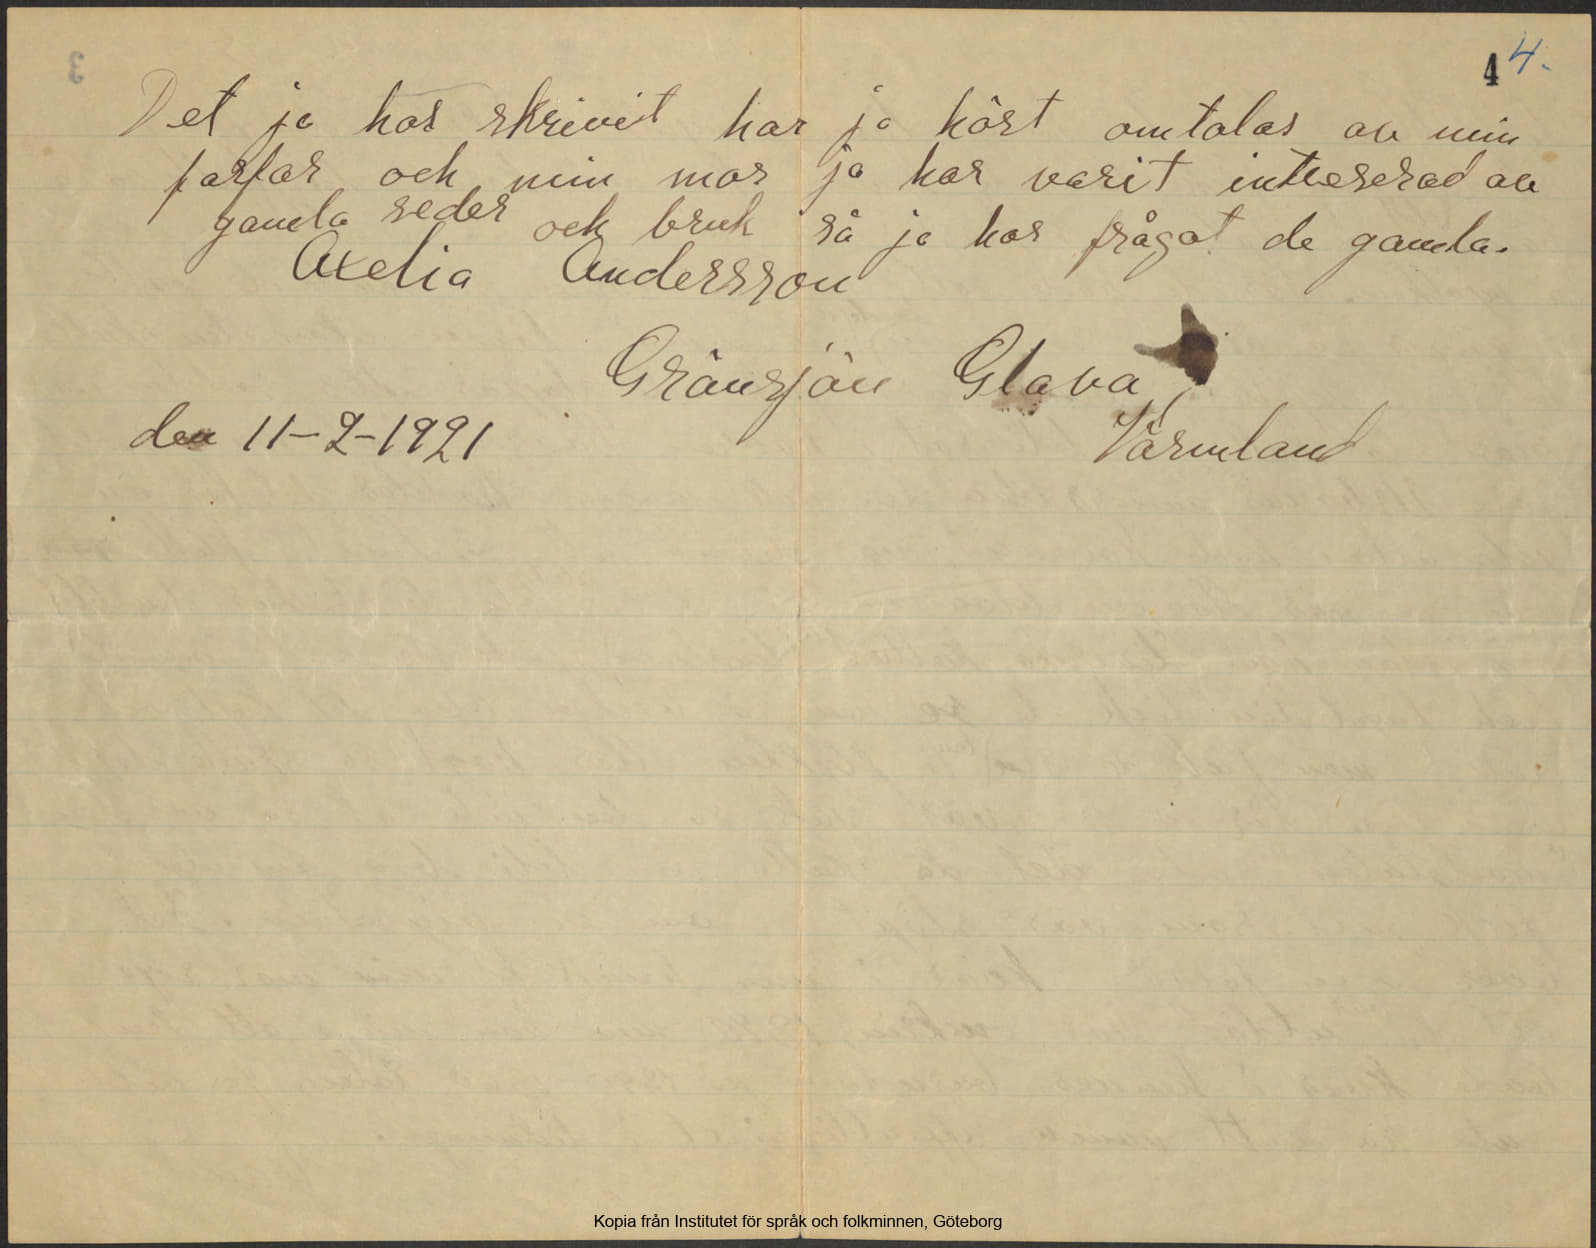 4 4.
Det ja har skrivit har ja hört omtalas av min
farfar och min mor ja har varit intreserad av
gamla seder och bruk så ja har frågat de gamla.
Axelia Andersson
Gränsjön Glava
den 11-2-1921 Värmland
Kopia från Institutet för språk och folkminnen, Göteborg